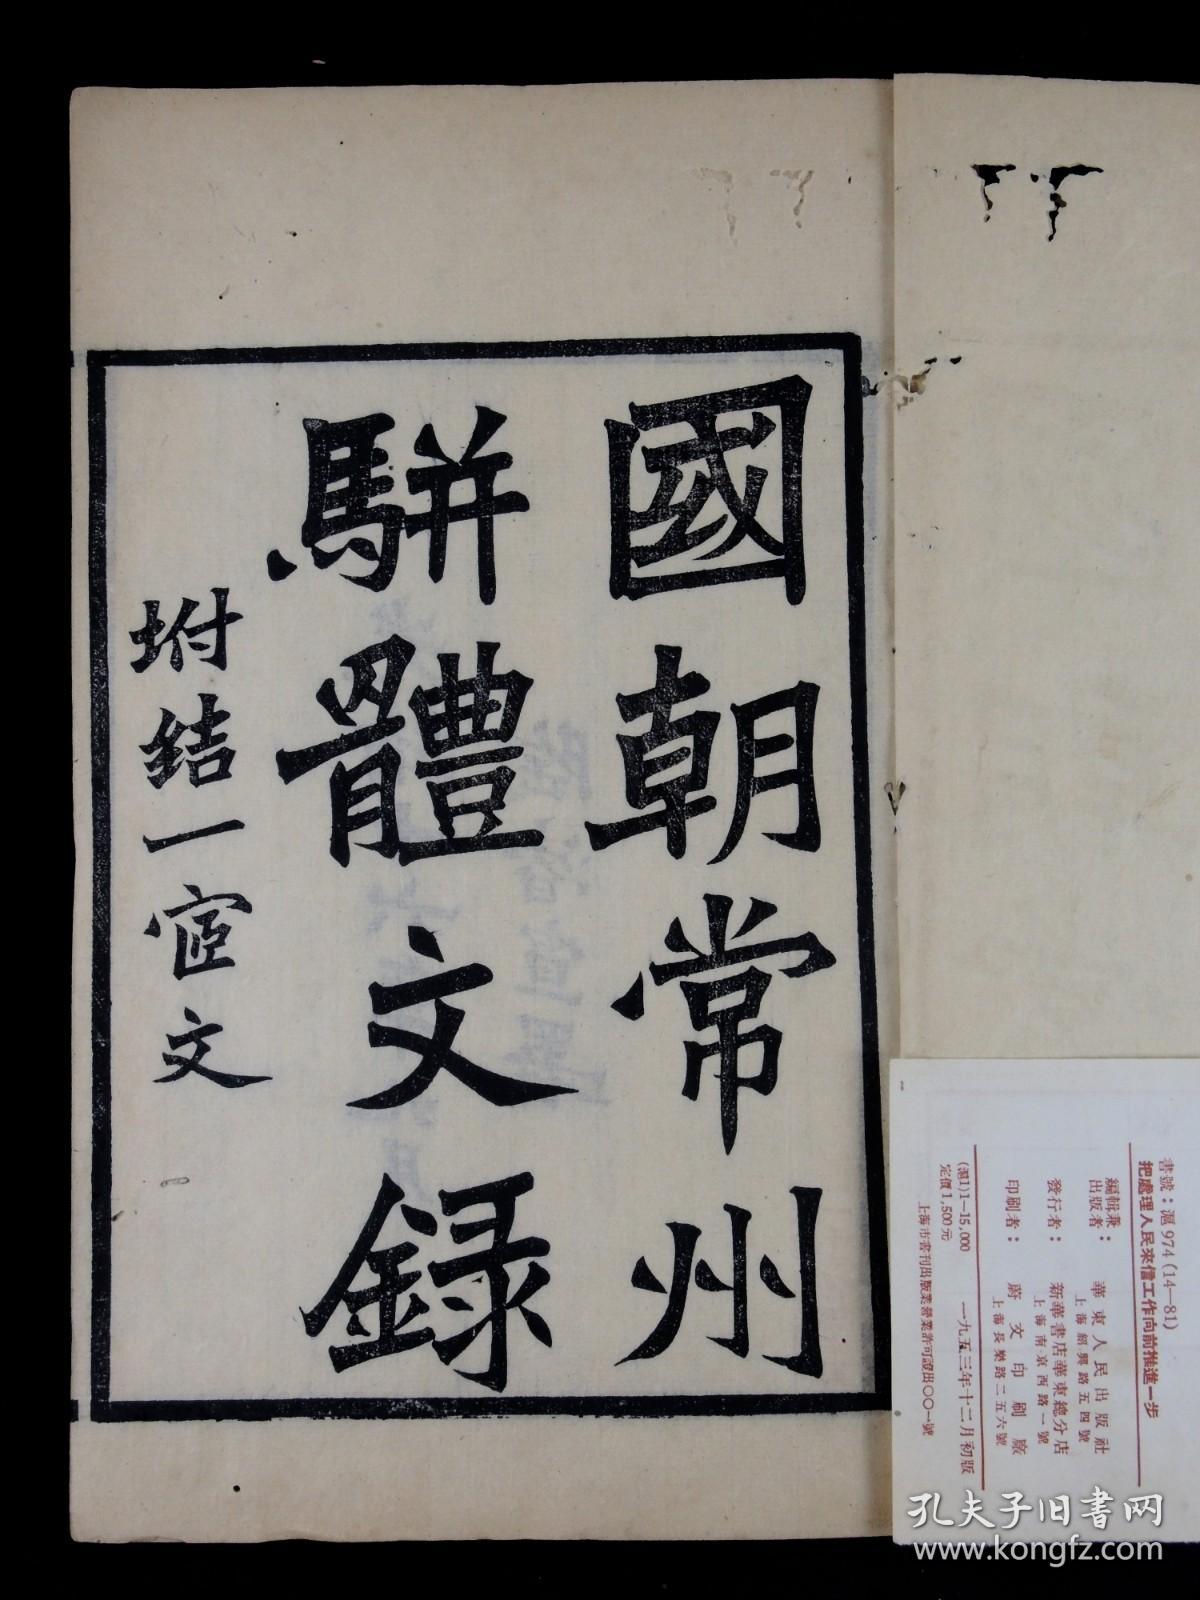 國朝常州
駢體文録
坿结一宧文
書號：滬974(14—81)
把處理人民來信工作向前推進一步
編輯兼出版者：華東人民出版社
上海紹興路五四號
發行者：新華書店華東總分店
上海南京西路一號
印刷者：蔚文印刷廠
上海長樂路二五六號
(滬1)1—15,000 一九五三年十二月初版
定價1,500元
上海市書刊出版業營業許可證出〇〇一號
孔夫子旧书网
www.kongfz.com